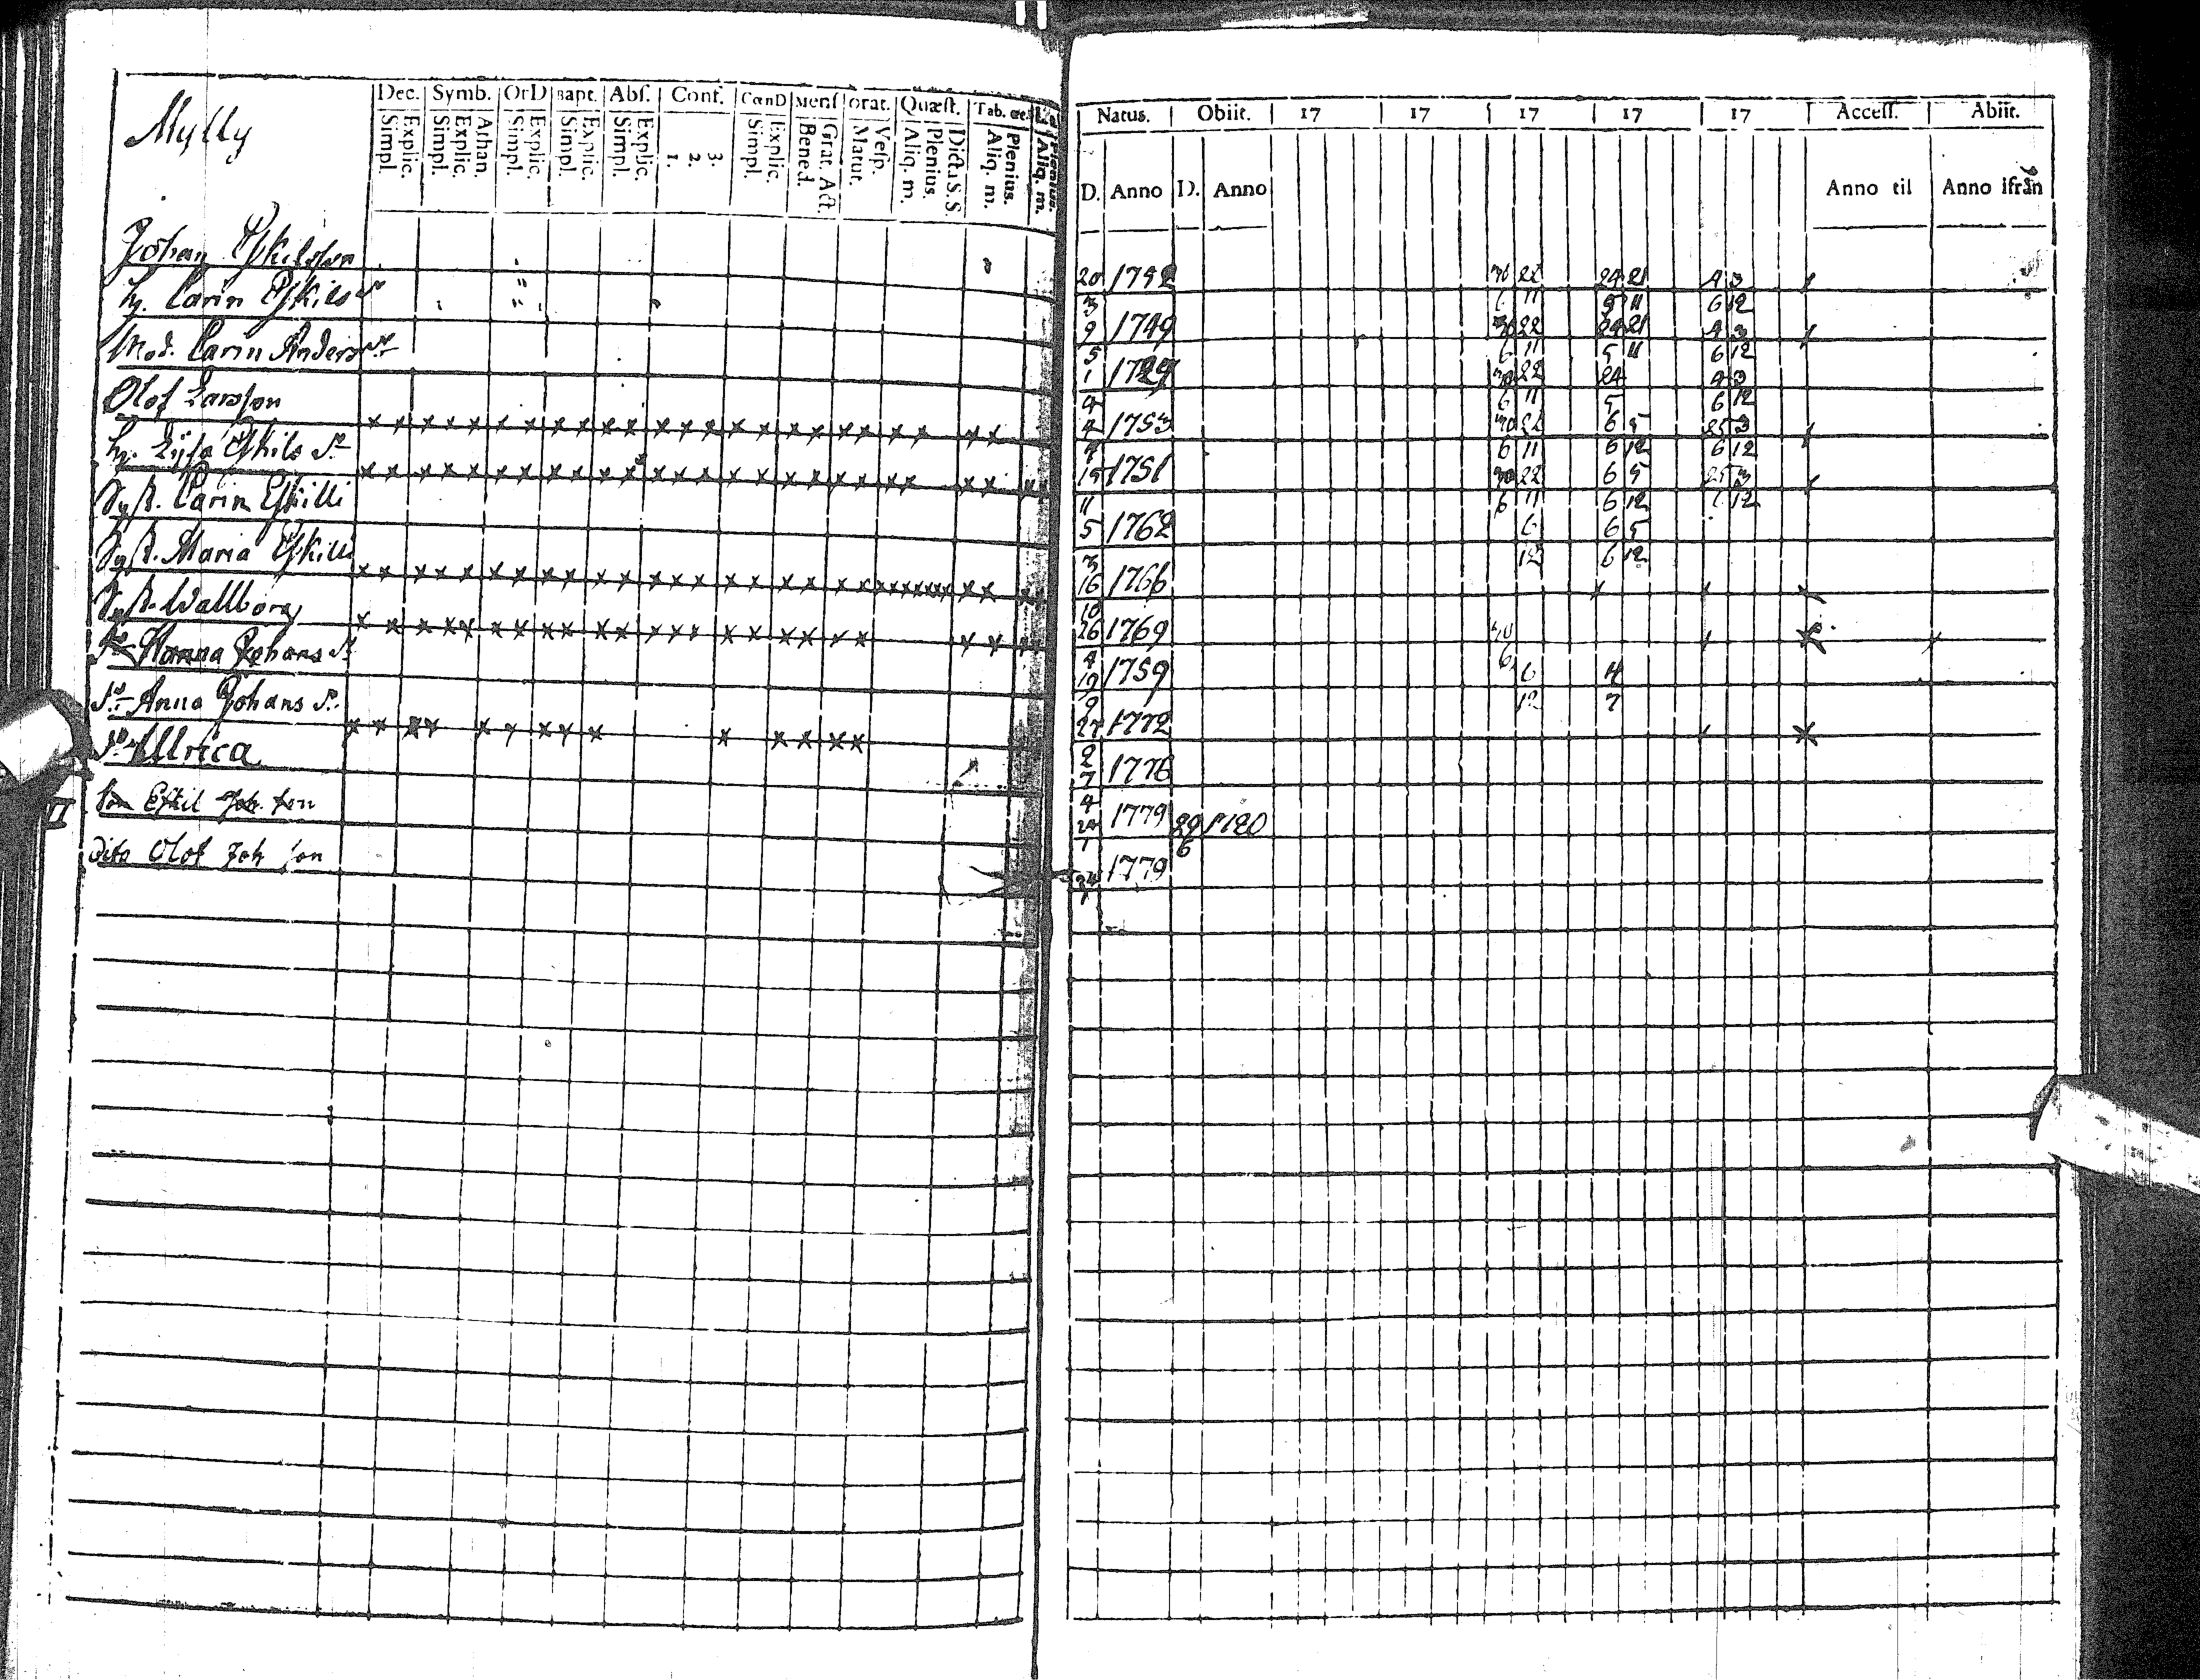 Mylly
Dec. Symb. OrD Bapt. Abs. Conf. CœnD Mens Orat. Quæst. Tab. œc.
Explic. Simpl. Athan. Explic. Simpl. Explic. Simpl. Explic. Simpl. Explic. Simpl. 3. 2. 1. Explic. Simpl. Grat. Act. Bened. Vesp. Matut. Dicta S.S. Plenius. Aliq. m. Plenius. Aliq. m. Plenius. Aliq. m.
Johan Eskilsson
h. Carin Eskils dr
Mod. Carin Anders dr
Olof Larsson
h. Lisa Eskils dr
Syst. Carin Eskilli
Syst. Maria Eskilli
Syst. Wallborg
Hanna Johans dr
dr Anna Johans dr
dr Ulrica
Son Eskil Joh. son
dito Olof Joh son
Natus. Obiit. 17 17 17 17 17 Access. Abiit.
D. Anno D. Anno Anno til Anno ifrån
20 1742 30 22 24 21 4 3
3 6 11 5 11 6 12
9 1749 30 22 24 21 4 3
5 6 11 5 11 6 12
1 1729 30 22 24 4 3
4 6 11 5 6 12
4 1753 30 22 6 5 25 3
6 11 6 12 6 12
15 1751 30 22 6 5 25 3
11 6 11 6 12 6 12
5 1762 6 6 5
3 12 6 12
16 1766
10
26 1769 30
4 6
19 1759 6 4
9 12 7
27 1772
2
7 1776
4
24 1779 29 1780
1 6
24 1779